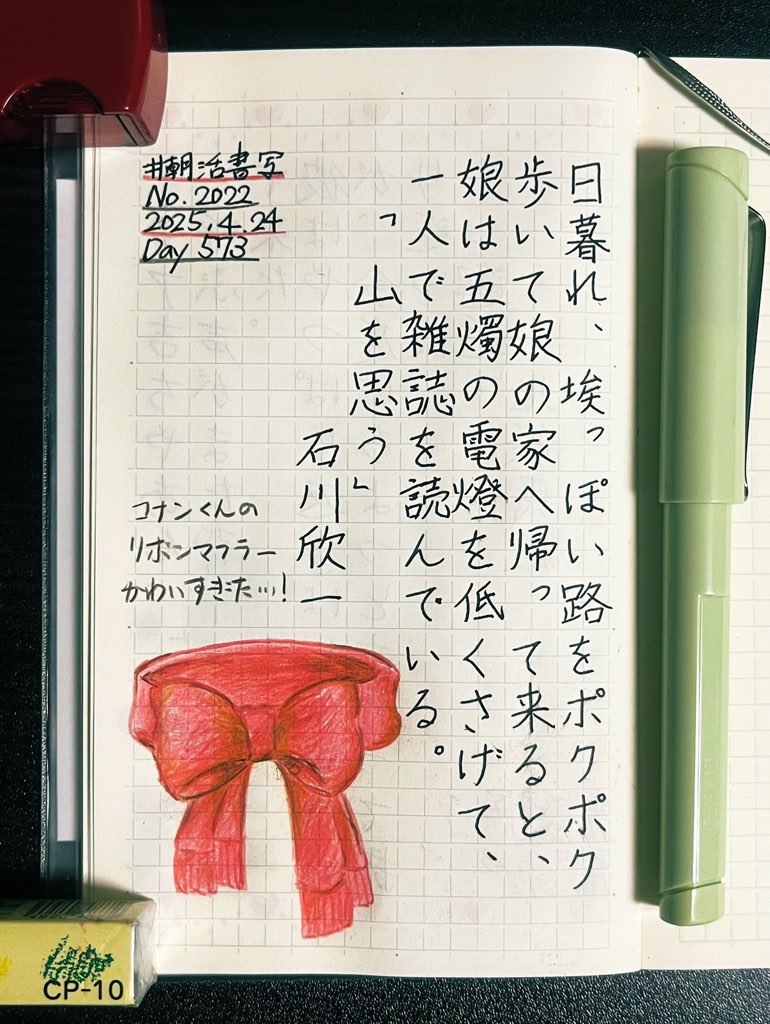 #朝活書写
No. 2022
2025. 4. 24
Day 573
日暮れ、埃っぽい路をポクポク
歩いて娘の家へ帰って来ると、
娘は五燭の電燈を低くさげて、
一人で雑誌を読んでいる。
「山を思う」
石川欣一
コナンくんの
リボンマフラー
かわいすぎた…!
CP-10